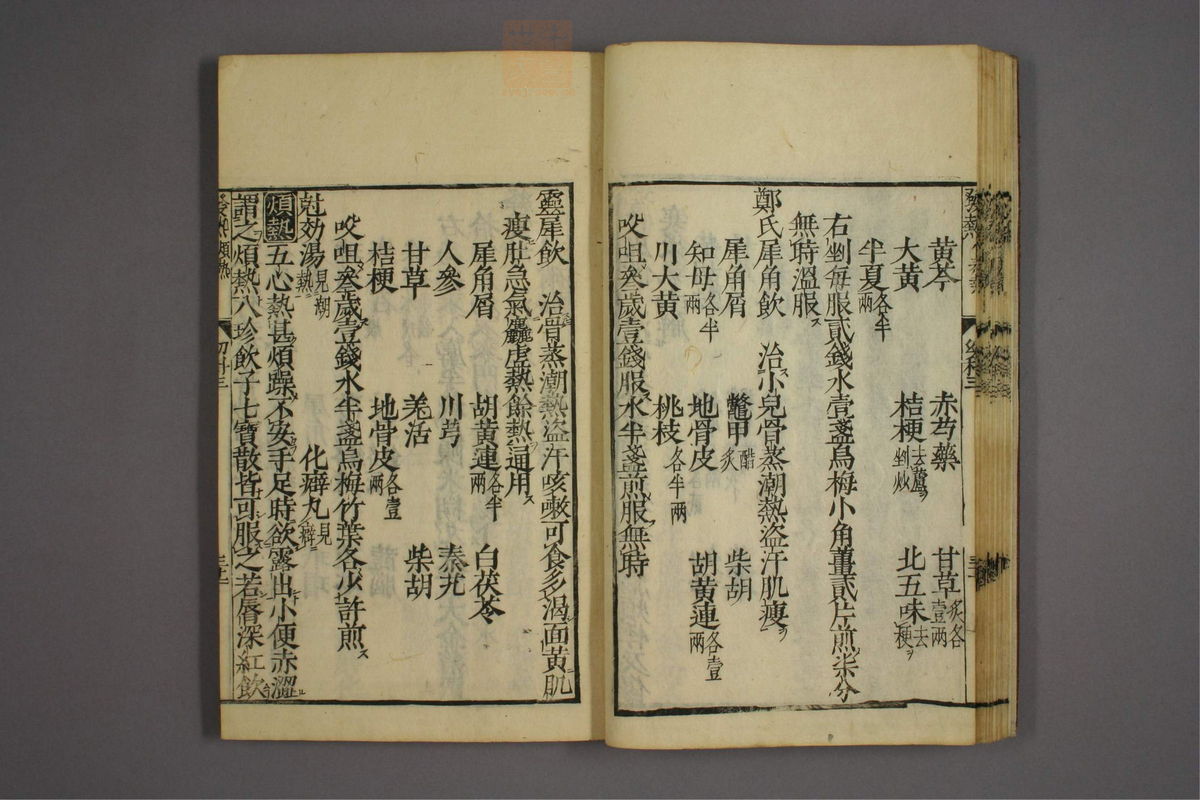 黄芩 赤芍藥 甘草炙各壹兩
大黄 桔梗去蘆剉炒 北五味去梗
半夏各半兩
右剉每服貳錢水壹盞烏梅小角薑貳片煎柒分
無時溫服
鄭氏犀角飲 治小兒骨蒸潮熱盜汗肌瘦
犀角屑 鼈甲醋炙 柴胡
知母各半兩 地骨皮 胡黄連各壹兩
川大黄 桃枝各半兩
㕮咀叁歲壹錢服水半盞煎服無時
靈犀飲 治骨蒸潮熱盜汗咳嗽可食多渴面黄肌
瘦肚急氣麤虛熱餘熱通用
犀角屑 胡黄連各半兩 白茯苓
人參 川芎 秦艽
甘草 羗活 柴胡
桔梗 地骨皮各壹兩
㕮咀叁歲壹錢水半盞烏梅竹葉各少許煎
尅効湯見潮熱 化癖丸見癖
煩熱五心熱甚煩躁不安手足時欲露出小便赤澀
謂之煩熱八珍飲子七寶散皆可服之若唇深紅飲